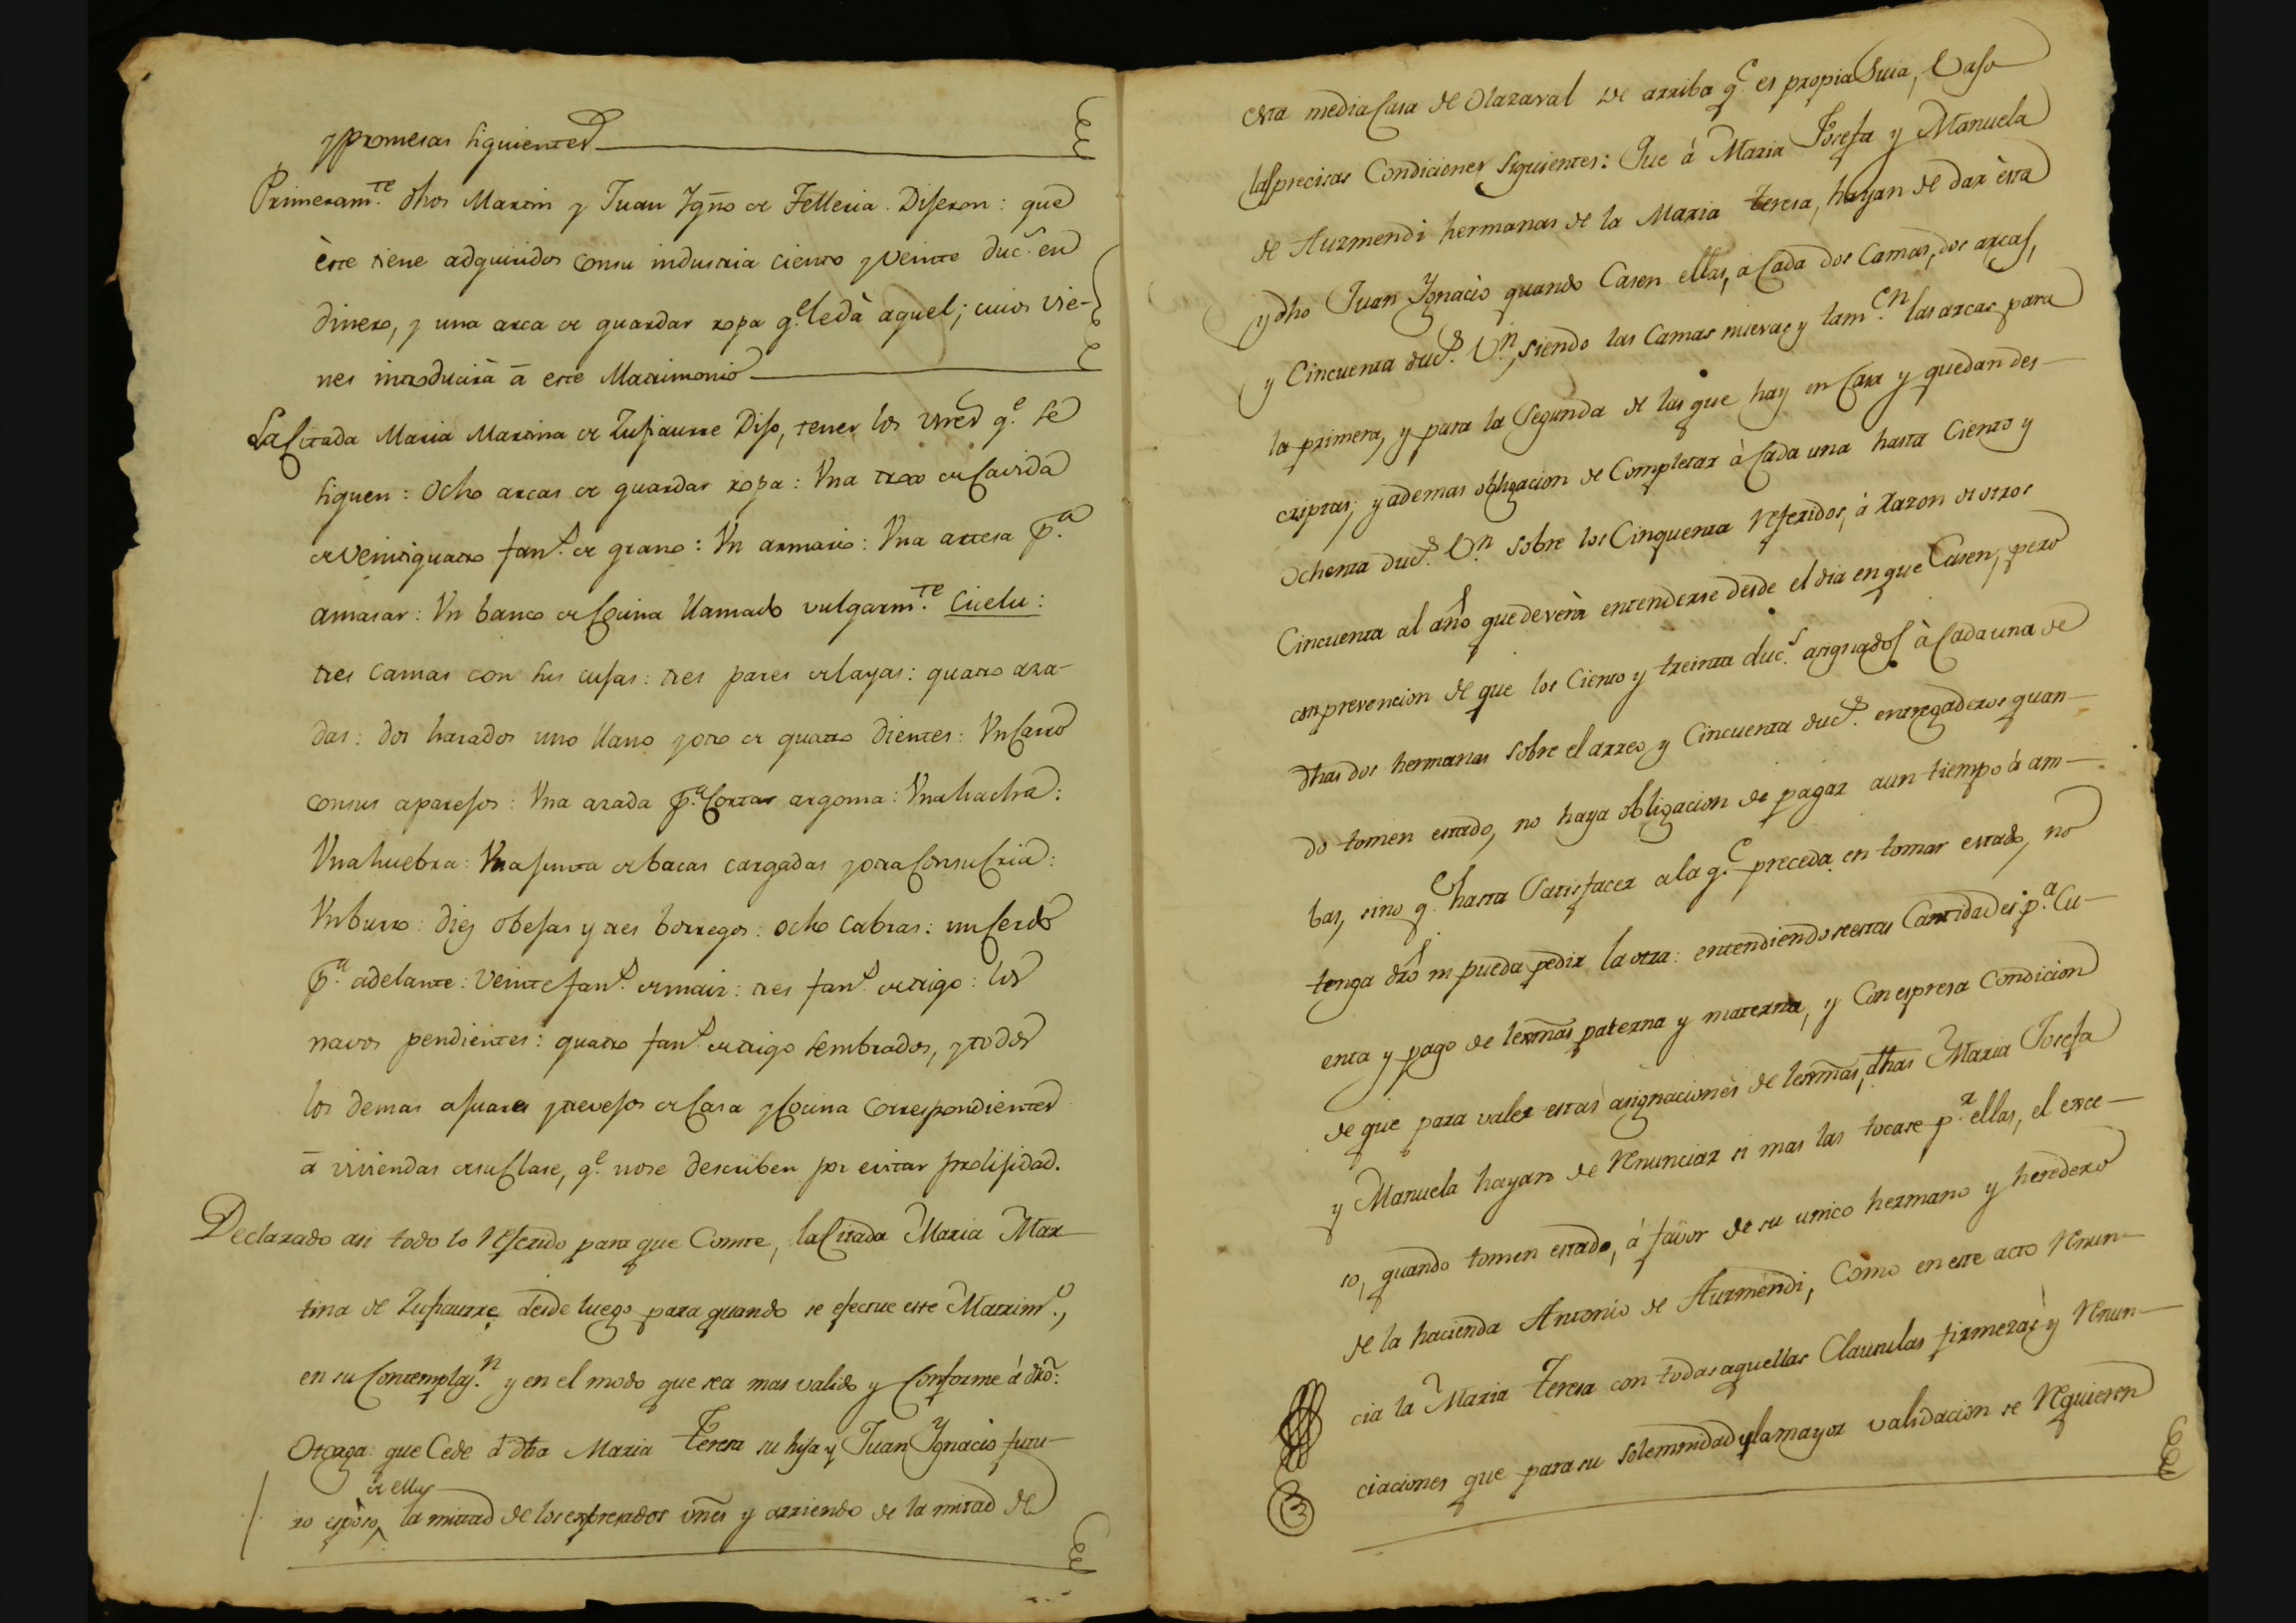 y promesas siguientes
Primeram.te dhos Martin y Juan Ygño de Telleria. Dijeron: que
èste tiene adquiridos con su industria ciento y veinte duc.s en
dinero, y una arca de guardar ropa q.e le dà aquel; cuios vie-
nes introducirà à este Matrimonio
La Citada Maria Martina de Zufiaurre Dijo, tener los vnes q.e se
siguen: Ocho arcas de guardar ropa: Una trox de Cavida
de veintiquatro fan.s de grano: Un armario: Una artesa p.a
amasar: Un banco de Cocina llamado vulgarm.te Cicelu:
tres Camas con sus cujas: tres pares de layas: quatro aza-
das: dos harados uno llano y otro de quatro dientes: Un Carro
con sus aparejos: Una azada p.a Cortar argoma: Una hacha:
Una huebra: Una junta de bacas cargadas y otra Con su Cria:
Un burro: diez obejas y tres borregos: ocho Cabras: un Cerdo
p.a adelante: Veinte fan.s de maiz: tres fan.s de trigo: los
navos pendientes: quatro fan.s de trigo sembrados, y todos
los demas ajuares y trevejos de Casa y Cocina Correspondientes
à viviendas de su Clase, q.e no se describen por evitar prolijidad.
Declarado asi todo lo referido para que Conste, la Citada Maria Mar
tina de Zufiaurre desde luego para quando se efectue este Matrim.o,
en su Contemplaz.n y en el modo que sea mas valido y Conforme á dro:
Otorga: que Cede á dha Maria Teresa su hija y Juan Ygnacio futu-
de ella
ro esposo, la mitad de los expresados vnes y arriendo de la mitad de
esta media Casa de Olazaval de arriba q.e es propia Suia, Vajo
las precisas Condiciones siguientes: Que á Maria Josefa y Manuela
de Auzmendi hermanas de la Maria Teresa, hayan de dar èsta
y dho Juan Ygnacio quando Casen ellas, a Cada dos Camas, dos arcas,
y Cincuenta duc.s V.n, siendo las Camas nuevas y tam.en las arcas para
la primera, y para la Segunda de las que hay en Casa y quedan des-
criptas; y ademas obligacion de Completar à Cada una hasta Ciento y
Ochenta duc.s V.n sobre los Cinquenta referidos, á razon de otros
Cincuenta al año que deverà entenderse desde el dia en que Casen, pero
con prevencion de que los Ciento y treinta duc.s asignados à Cada una de
dhas dos hermanas sobre el arreo y Cincuenta duc.s entregaderos quan-
do tomen estado, no haya obligacion de pagar a un tiempo á am-
bas, sino q.e hasta Satisfacer a la q.e preceda en tomar estado, no
tenga dro ni pueda pedir la otra: entendiendose estas Cantidades p.a Cu-
enta y pago de lexmas paterna y materna, y Con espresa Condicion
de que para valer estas asignaciones de lexmas, dhas Maria Josefa
y Manuela hayan de renunciar si mas las tocase p.r ellas, el exce-
so, quando tomen estado, á favor de su unico hermano y heredero
de la hacienda Antonio de Auzmendi, Como en este acto renun-
cia la Maria Teresa con todas aquellas Clausulas firmezas y renun-
ciaciones que para su solemnidad y la mayor validacion se requieren